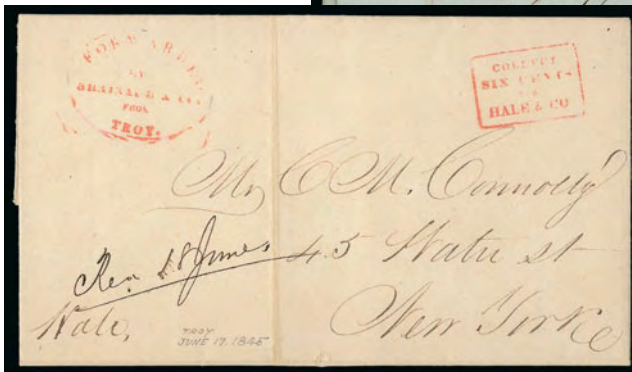 FORWARDED
BY
BRAINARD & CO.
FROM
TROY.
COLLECT
SIX CENTS
FOR
HALE & CO
Mr C M. Connolly
45 Water st
New York
Rec 18 June
Hale,
TROY
JUNE 17. 1845